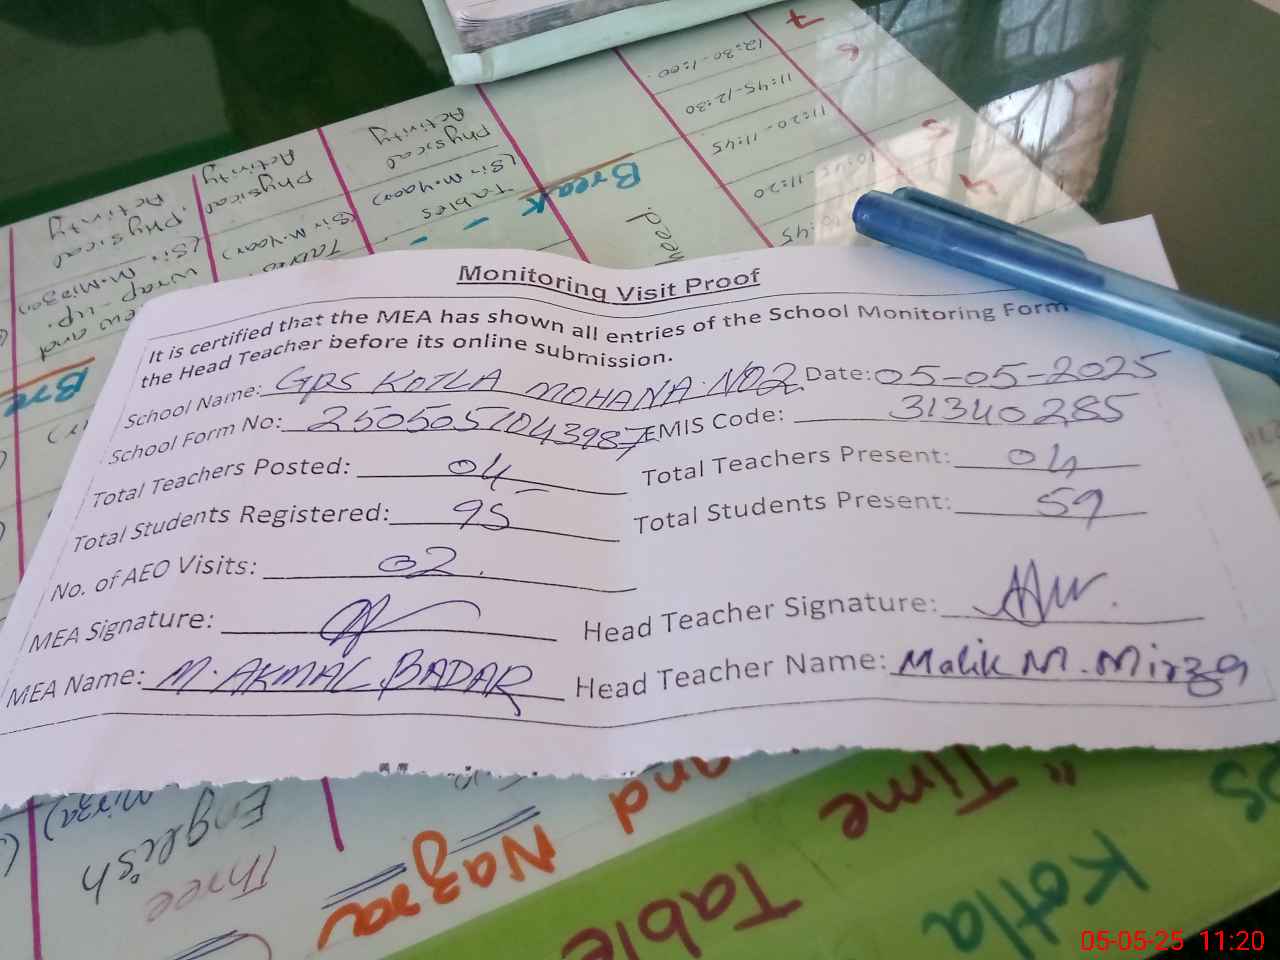 Monitoring Visit Proof
It is certified that the MEA has shown all entries of the School Monitoring Form
the Head Teacher before its online submission.
School Name: GPS KOTLA MOHANA NO2 Date: 05-05-2025
School Form No: 2505051043987 EMIS Code: 31340285
Total Teachers Posted: 04 Total Teachers Present: 04
Total Students Registered: 95 Total Students Present: 59
No. of AEO Visits: 02.
MEA Signature: Head Teacher Signature:
MEA Name: M. AKMAL BADAR Head Teacher Name: Malik M. Mirza
7
6
5
4
12:30-1:00
11:45-12:30
11:20-11:45
11:20
:45
Break
Tables
(Sir M. Yaar)
Physical
Activity
(Sir M. Yaar)
Physical
Activity
wrap up.
(Sir M. Mirza)
Physical
Activity
English
Three
and Nazra
"Time
Table
Kotla
05-05-25 11:20